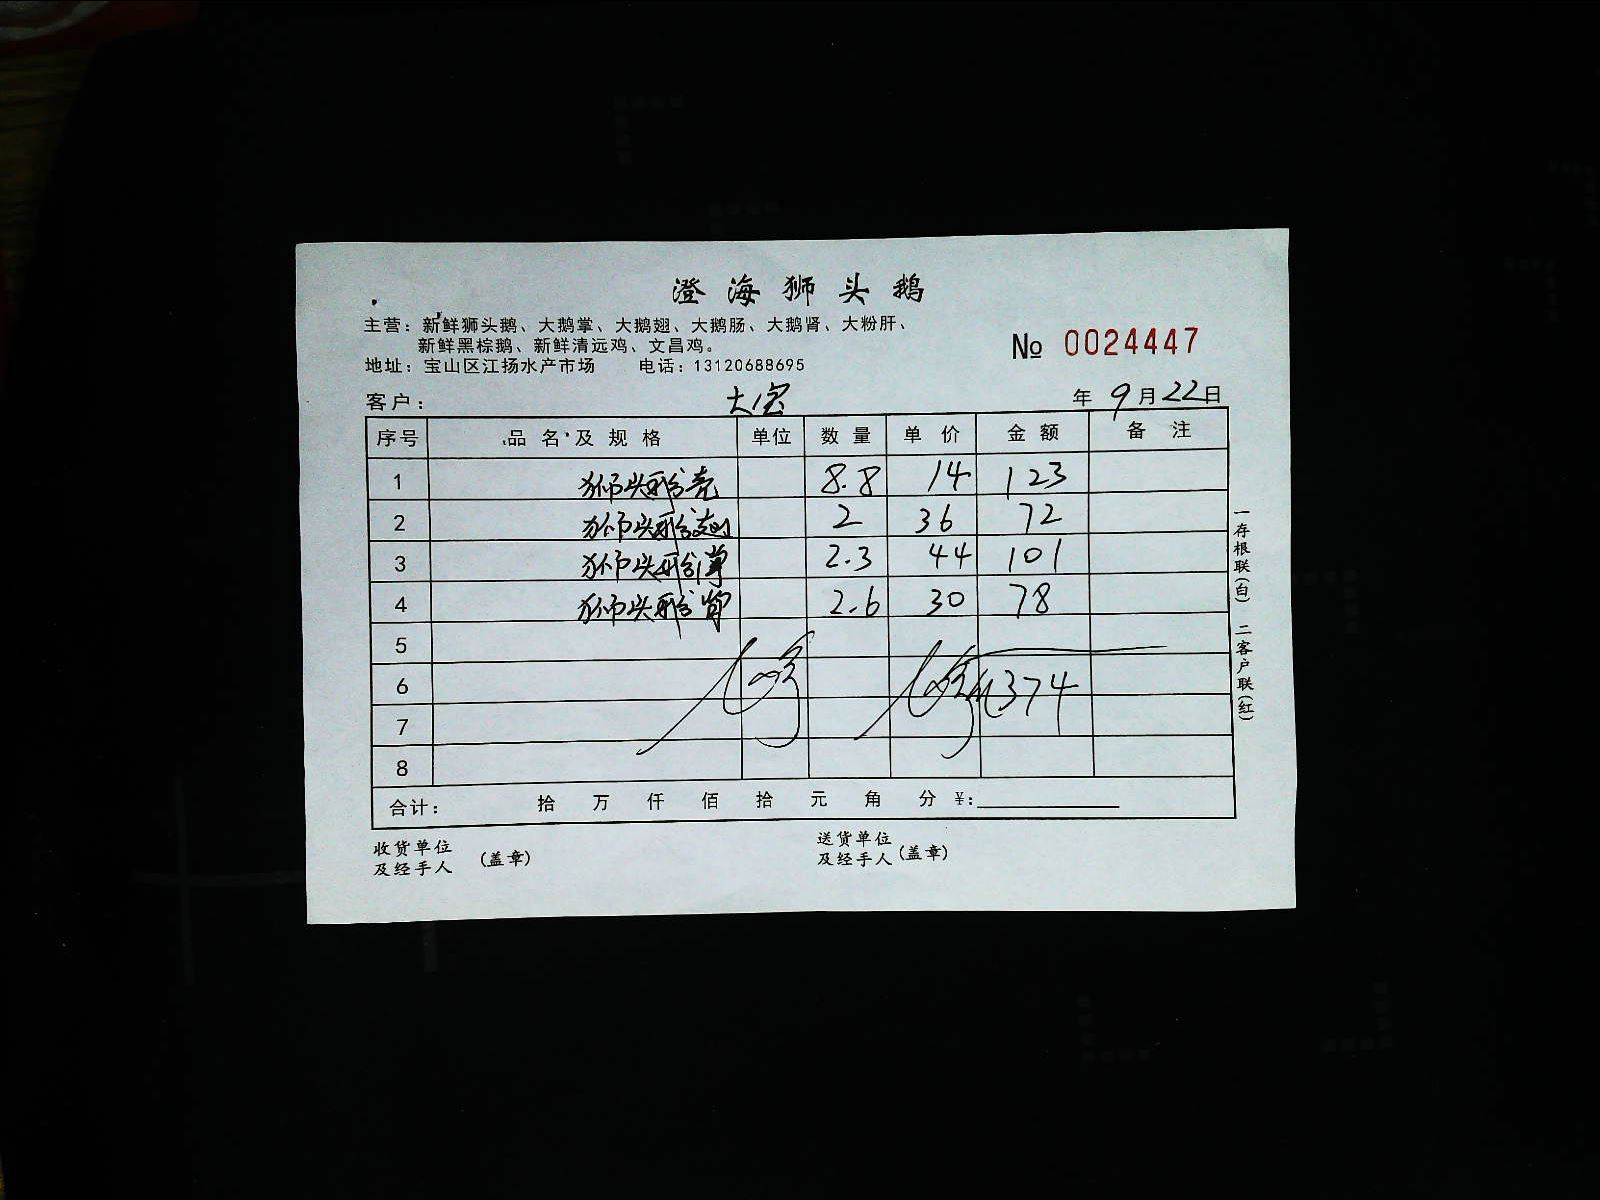 澄海狮头鹅
主营：新鲜狮头鹅、大鹅掌、大鹅翅、大鹅肠、大鹅肾、大粉肝、
新鲜黑棕鹅、新鲜清远鸡、文昌鸡。
№ 0024447
地址：宝山区江扬水产市场 电话：13120688695
客户： 年 9 月 22 日
序号 品名及规格 单位 数量 单价 金额 备注
1 狮头鹅壳 8.8 14 123
2 狮头鹅翅 2 36 72
3 狮头鹅掌 2.3 44 101
4 狮头鹅肾 2.6 30 78
5
6 374
7
8
合计： 拾 万 仟 佰 拾 元 角 分 ¥：
收货单位
及经手人 （盖章）
送货单位
及经手人（盖章）
一存根联（白） 二客户联（红）